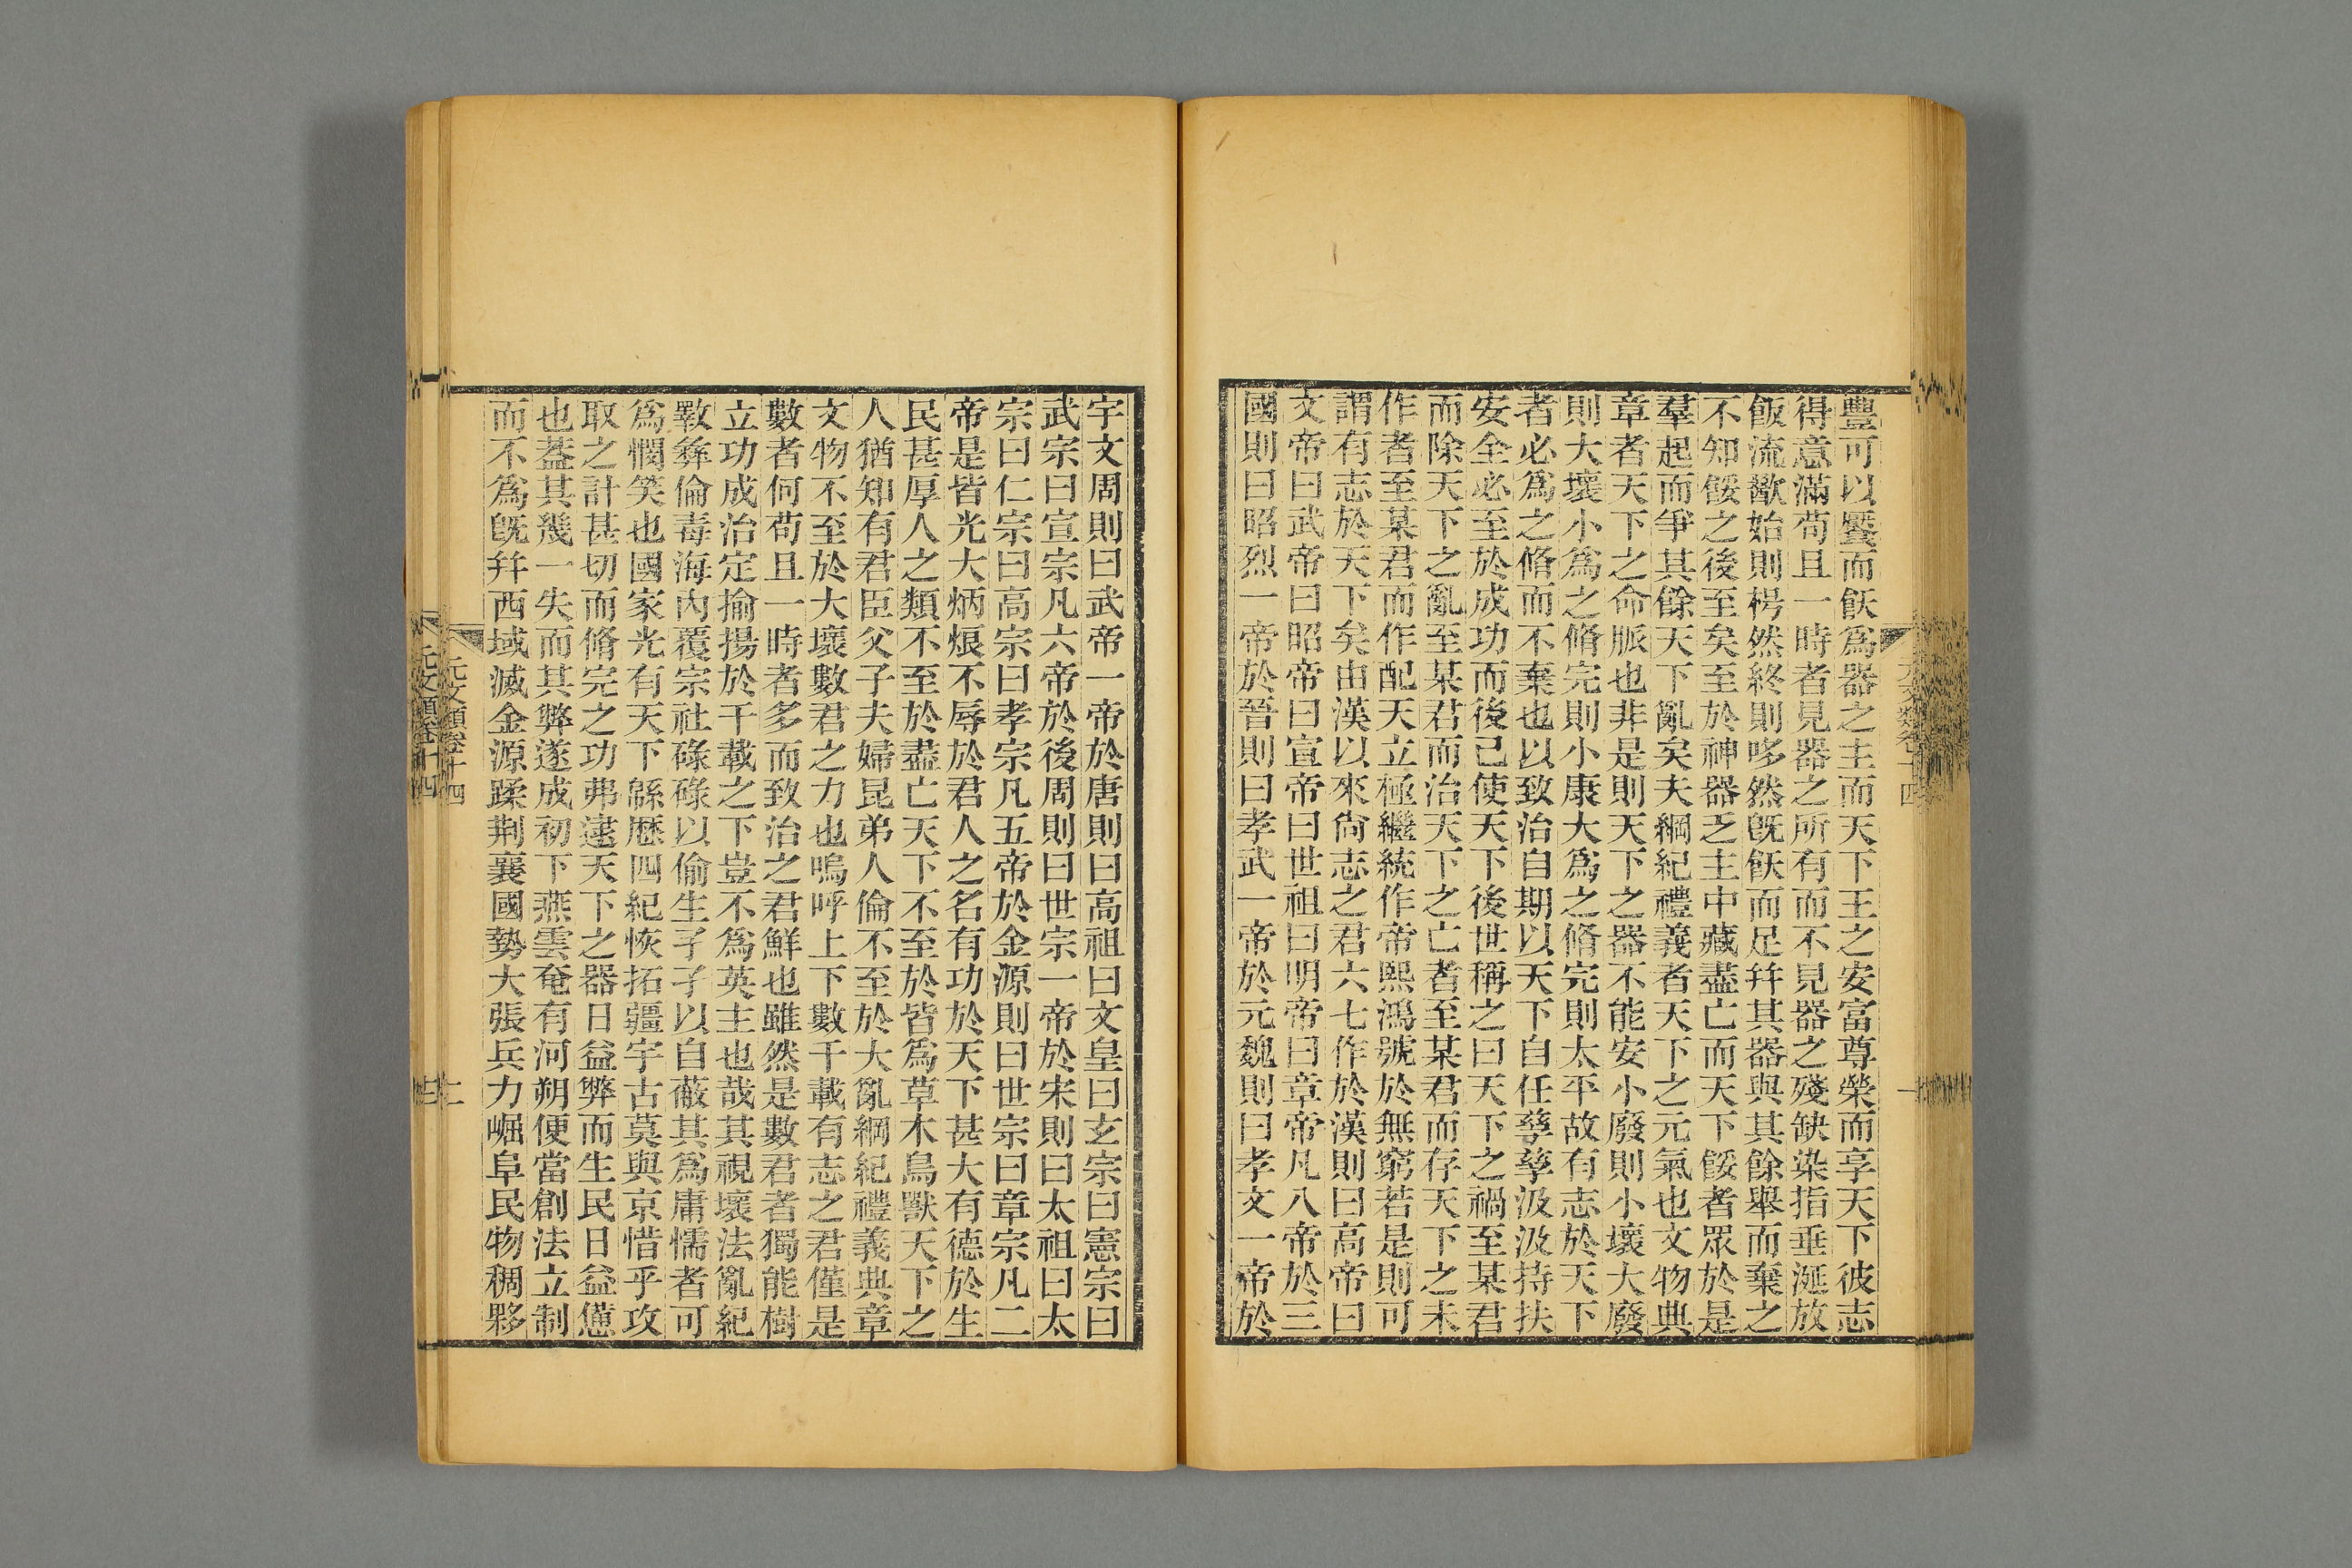 豐可以饜而飫爲器之主而天下王之安富尊榮而享天下彼志
得意滿苟且一時者見器之所有而不見器之殘缺染指垂涎放
飯流歠始則枵然終則哆然旣飫而足幷其器與其餘舉而棄之
不知餒之後至矣至於神器乏主中藏盡亡而天下餒者眾於是
羣起而爭其餘天下亂矣夫綱紀禮義者天下之元氣也文物典
章者天下之命脈也非是則天下之器不能安小廢則小壞大廢
則大壞小爲之脩完則小康大爲之脩完則太平故有志於天下
者必爲之脩而不棄也以致治自期以天下自任孳孳汲汲持扶
安全必至於成功而後已使天下後世稱之曰天下之禍至某君
而除天下之亂至某君而治天下之亡者至某君而存天下之未
作者至某君而作配天立極繼統作帝熙鴻號於無窮若是則可
謂有志於天下矣由漢以來尙志之君六七作於漢則曰高帝曰
文帝曰武帝曰昭帝曰宣帝曰世祖曰明帝曰章帝凡八帝於三
國則曰昭烈一帝於晉則曰孝武一帝於元魏則曰孝文一帝於
宇文周則曰武帝一帝於唐則曰高祖曰文皇曰玄宗曰憲宗曰
武宗曰宣宗凡六帝於後周則曰世宗一帝於宋則曰太祖曰太
宗曰仁宗曰高宗曰孝宗凡五帝於金源則曰世宗曰章宗凡二
帝是皆光大炳烺不辱於君人之名有功於天下甚大有德於生
民甚厚人之類不至於盡亡天下不至於皆爲草木鳥獸天下之
人猶知有君臣父子夫婦昆弟人倫不至於大亂綱紀禮義典章
文物不至於大壞數君之力也嗚呼上下數千載有志之君僅是
數者何苟且一時者多而致治之君鮮也雖然是數君者獨能樹
立功成治定揄揚於千載之下豈不爲英主也哉其視壞法亂紀
斁彝倫毒海內覆宗社碌碌以偷生孑孑以自蔽其爲庸懦者可
爲憫笑也國家光有天下緜歷四紀恢拓疆宇古莫與京惜乎攻
取之計甚切而脩完之功弗逮天下之器日益弊而生民日益憊
也蓋其幾一失而其弊遂成初下燕雲奄有河朔便當創法立制
而不爲旣幷西域滅金源蹂荆襄國勢大張兵力崛阜民物稠夥
元文類卷十四